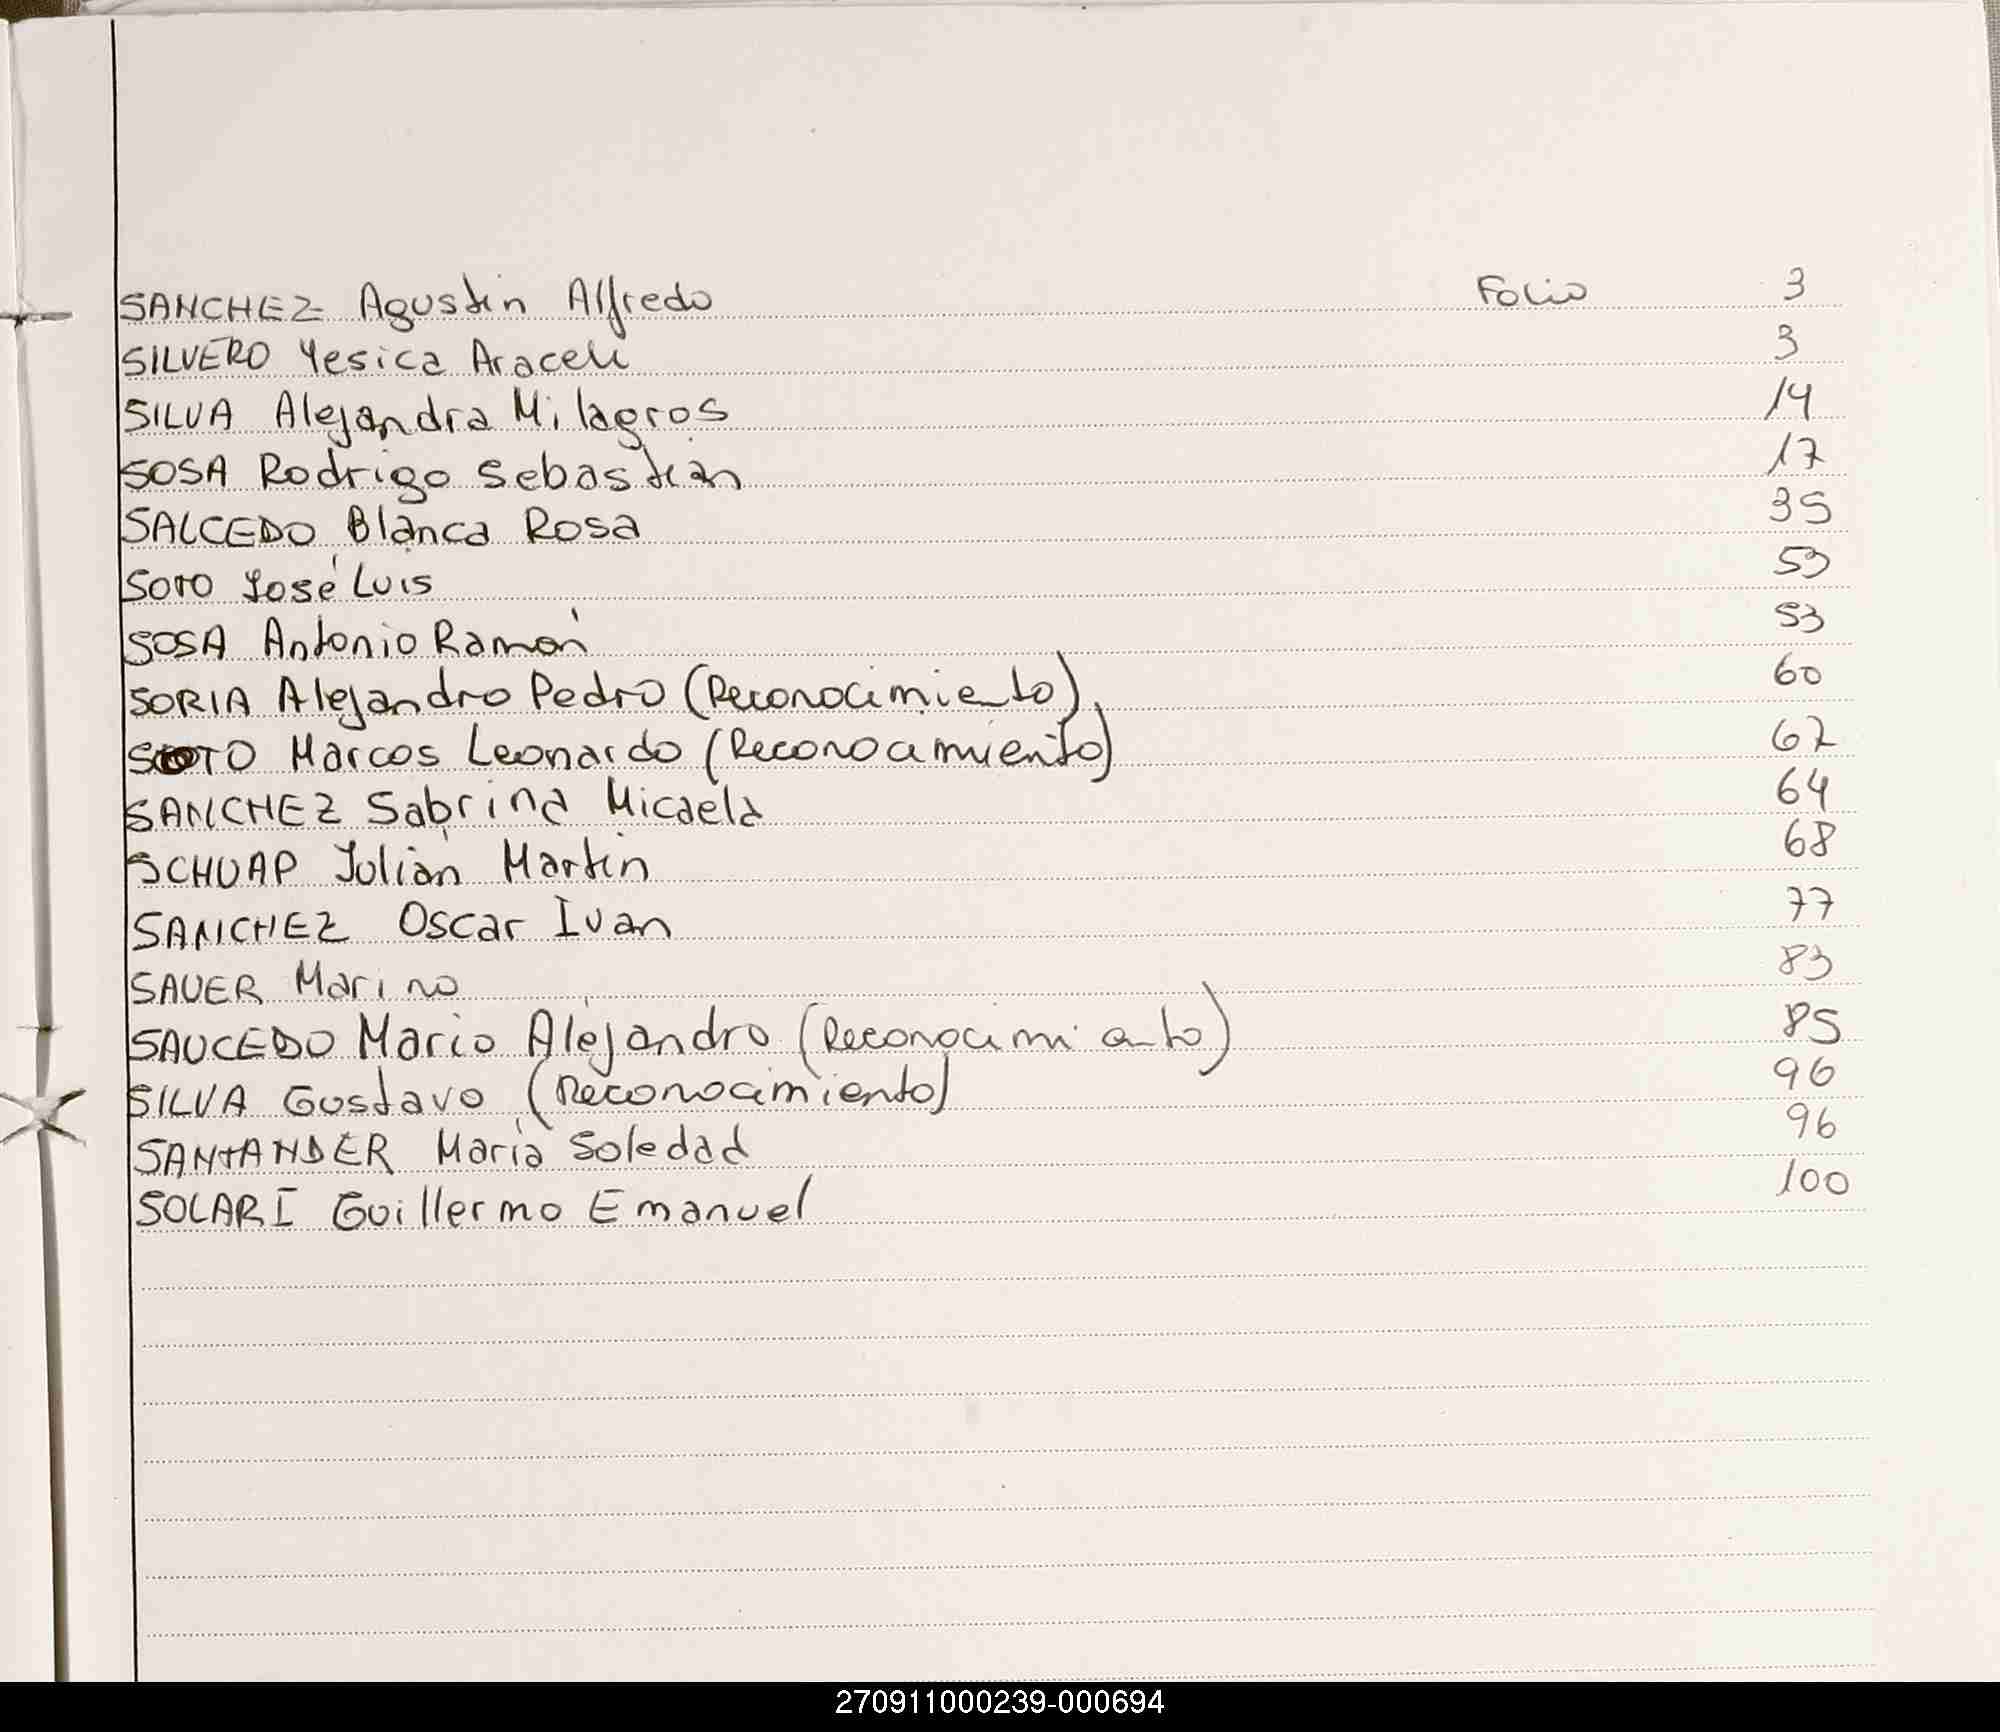 SANCHEZ Agustin Alfredo Folio 3
SILVERO Yesica Araceli 3
SILVA Alejandra Milagros 14
SOSA Rodrigo Sebastian 17
SALCEDO Blanca Rosa 35
SOTO José Luis 53
SOSA Antonio Ramón 53
SORIA Alejandro Pedro (Reconocimiento) 60
SOTO Marcos Leonardo (Reconocimiento) 62
SANCHEZ Sabrina Micaela 64
SCHUAP Julián Martin 68
SANCHEZ Oscar Ivan 77
SAUER Marino 83
SAUCEDO Mario Alejandro (Reconocimiento) 85
SILVA Gustavo (Reconocimiento) 96
SANTANDER María Soledad 96
SOLARI Guillermo Emanuel 100
270911000239-000694